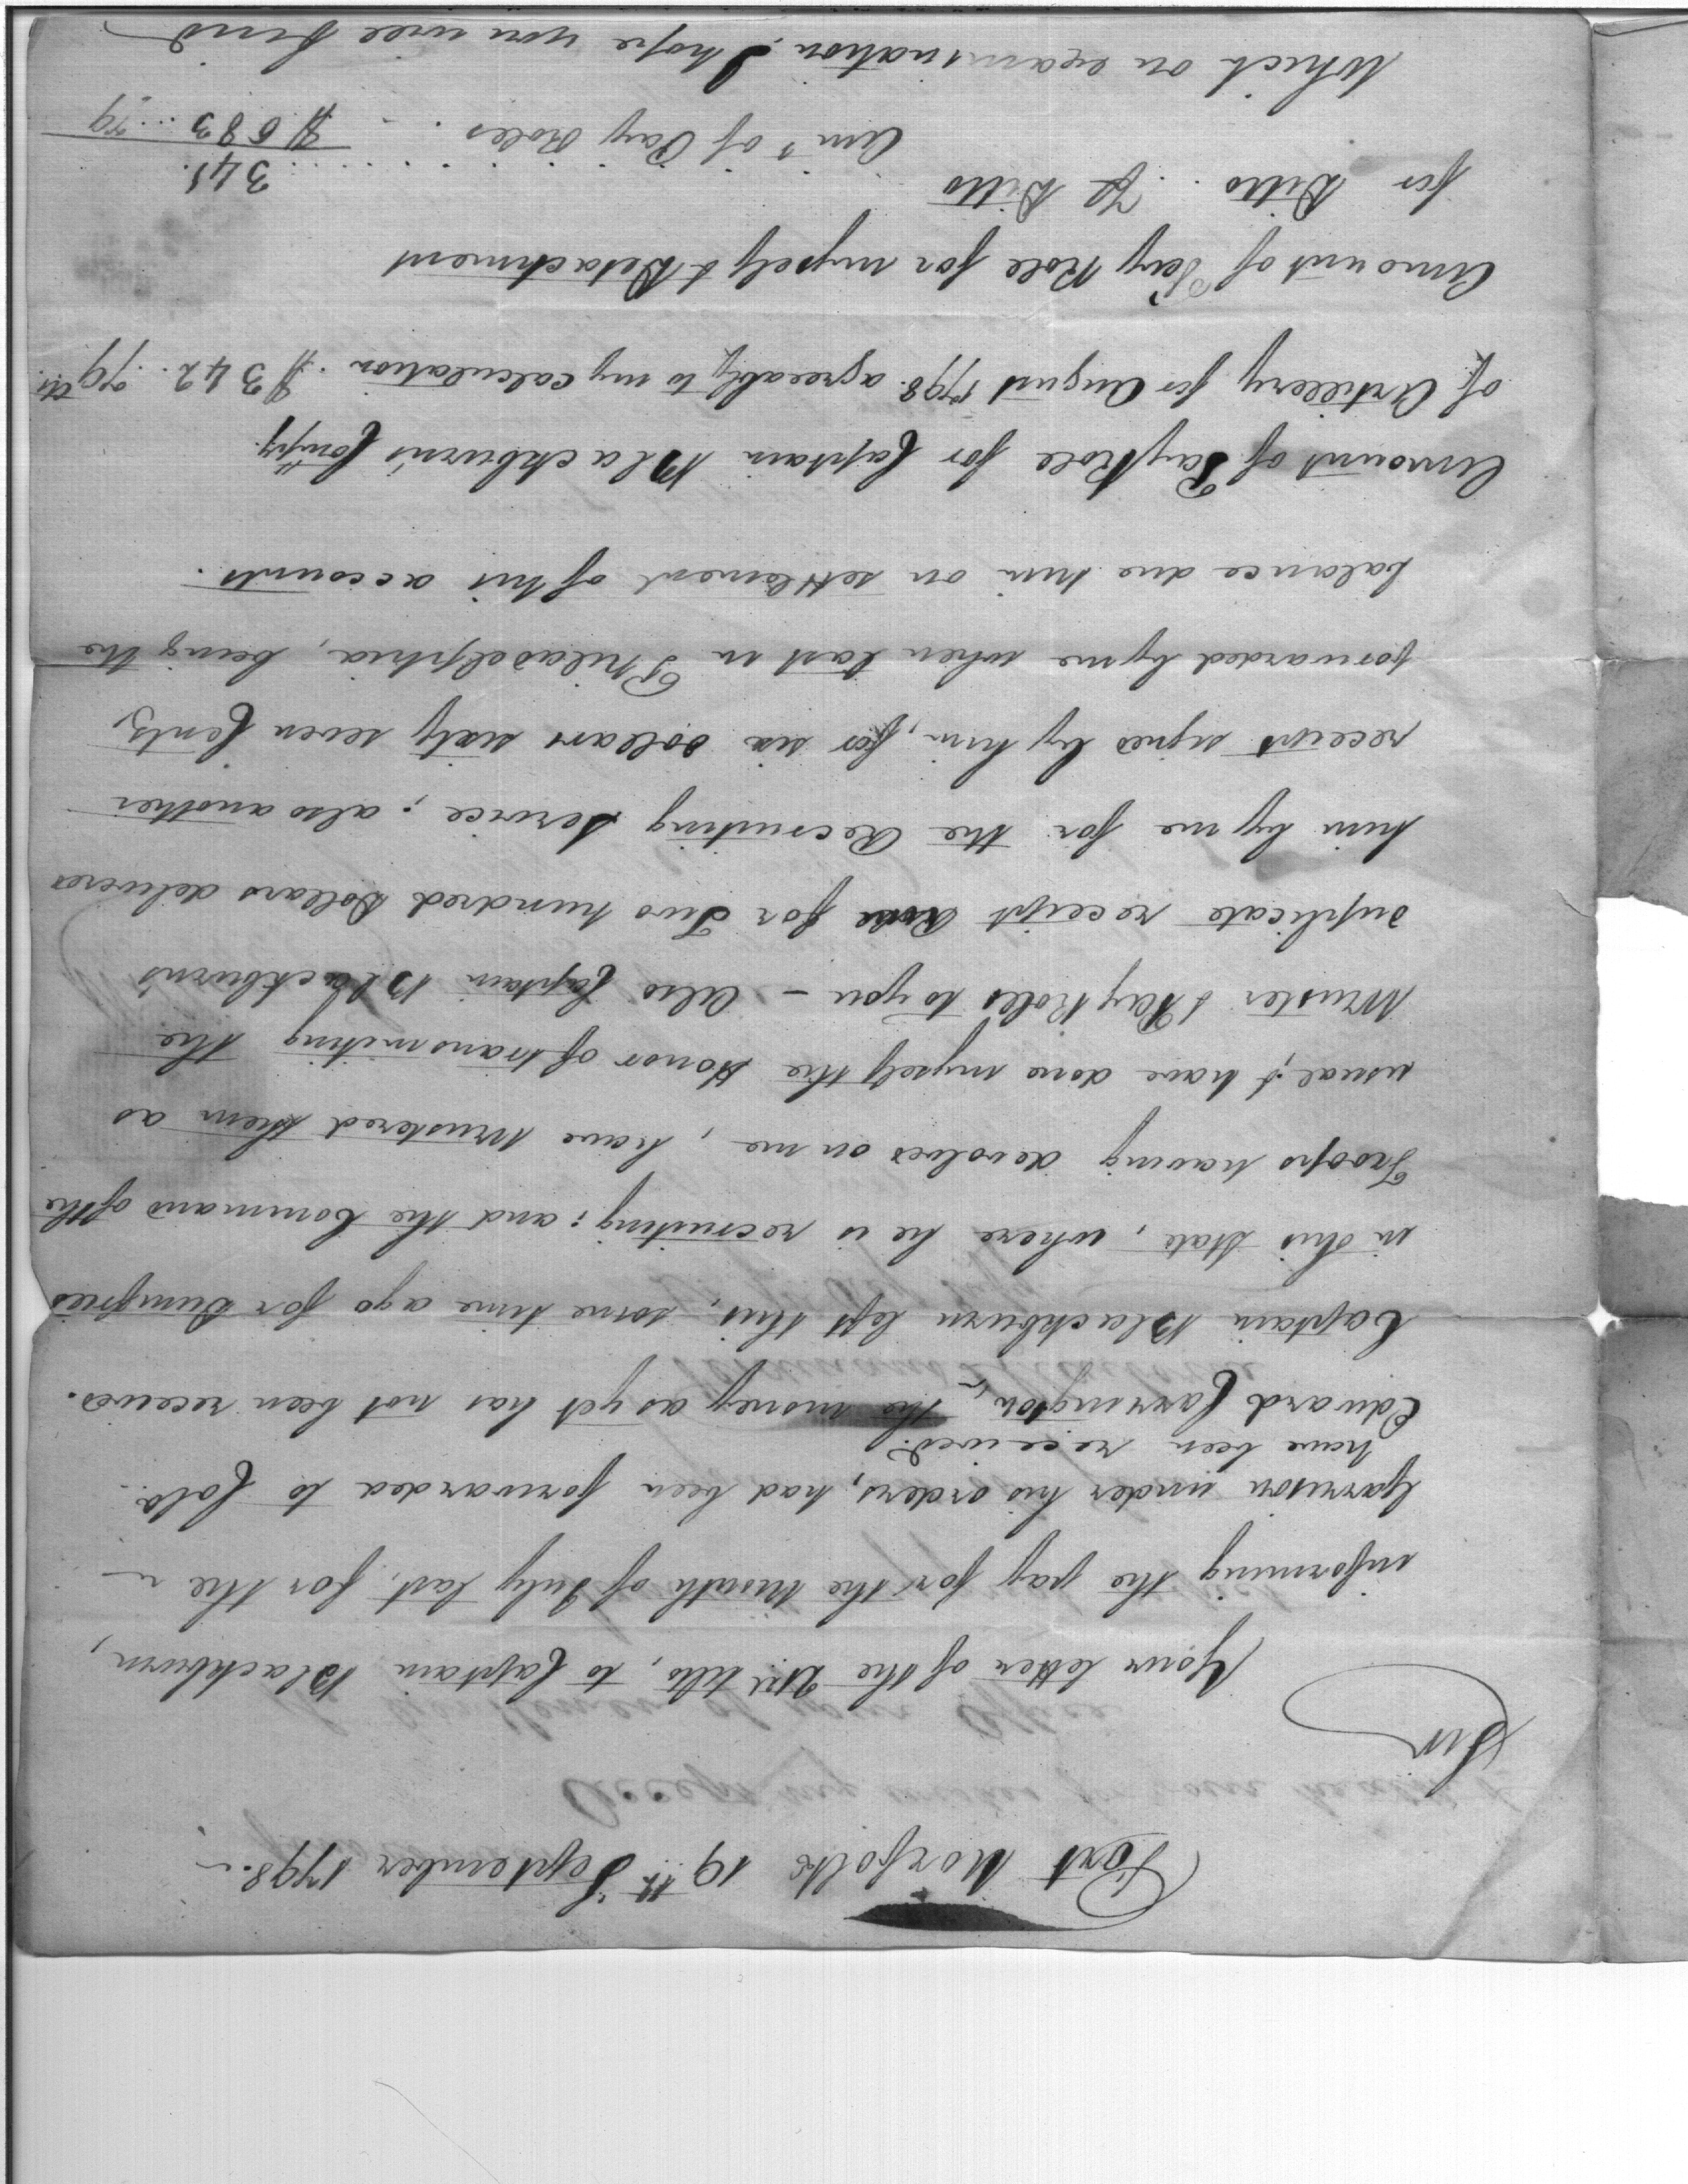 Fort Norfolk 19th September 1798.
Sir
Your letter of the Ult. to Captain Blackburn,
informing the pay for the Month of July last, for the
Garrison under his orders, had been forwarded to Colo.
have been received.
Edward Carrington, the money as yet has not been received.
Captain Blackburn left this, some time ago for Dumfries
in this State, where he is recruiting: and the Command of the
Troops having devolved on me, have Mustered them as
usual, & have done myself the Honor of transmitting the
Muster & Pay Roles to you - Also Captain Blackburn's
duplicate receipt for Two hundred Dollars delivered
him by me for the Recruiting Service; also another
receipt signed by him, for six dollars sixty seven Cents,
forwarded by me when last in Philadelphia, being the
balance due him on settlement of his accounts.
Amount of Pay Role for Captain Blackburn's Compy.
of Artillery for August 1798. agreeably to my calculation. $342.79 Cts.
Amount of Pay Role for myself & Detachment
for Ditto. Ditto 341.
Amt of Pay Roles $683..79
Which on examination I hope you will find